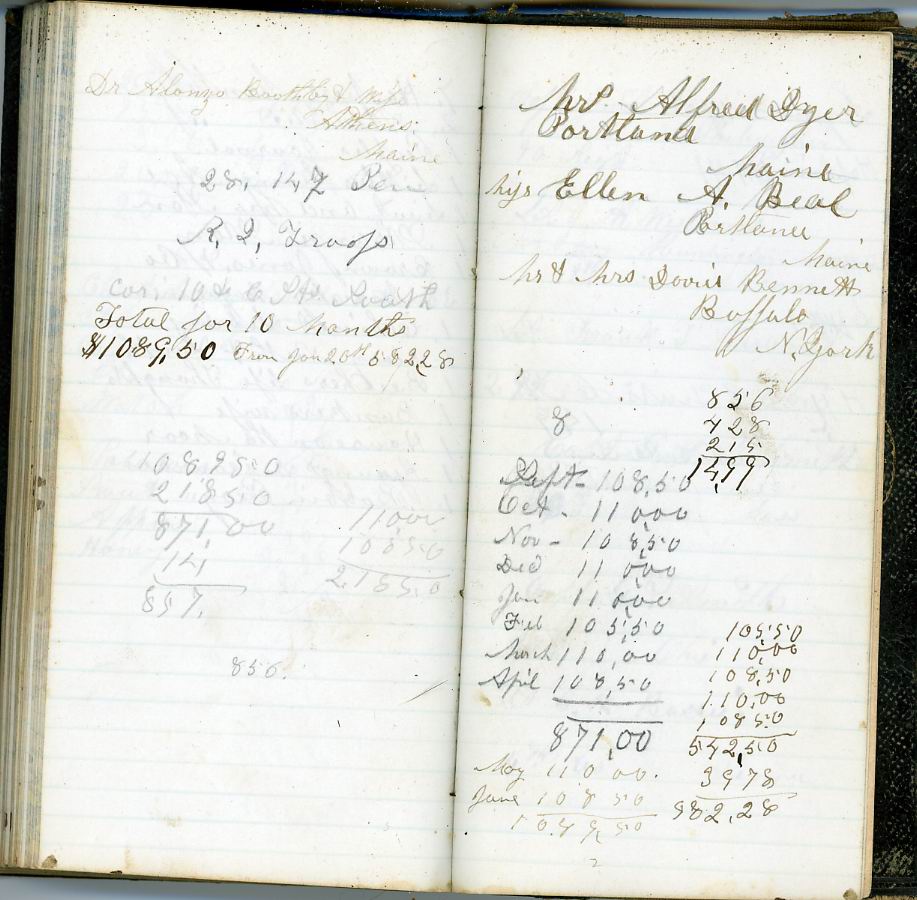 Dr Alonzo Boothby & Wife
Athens.
Maine
28, 147 Pen
R. I, Troops
Cor, 10 & C Sts
Total for 10 Months
$1089,50 From Jan 20th 5 8 2 2 8
1089 50
218 50
871,00
14,
857.
11000
108 50
218 5.0
856.
Mrs. Alfred Dyer
Portland
Maine
Miss Ellen A. Beal
Portland
Maine
Mr & Mrs Davis Bennett
Buffalo
N. York
8
856
428
215
1499
Sept - 108,50
Oct - 11 0,00
Nov - 10 8,50
Dec 11 0,00
Jan 11 0,00
Feb 10 5,50
March 110,00
April 108,50
871,00
May 110 00.
June 108 50
1089,50
105 50
110,00
108,50
110,00
108 50
542,50
39 78
582,28